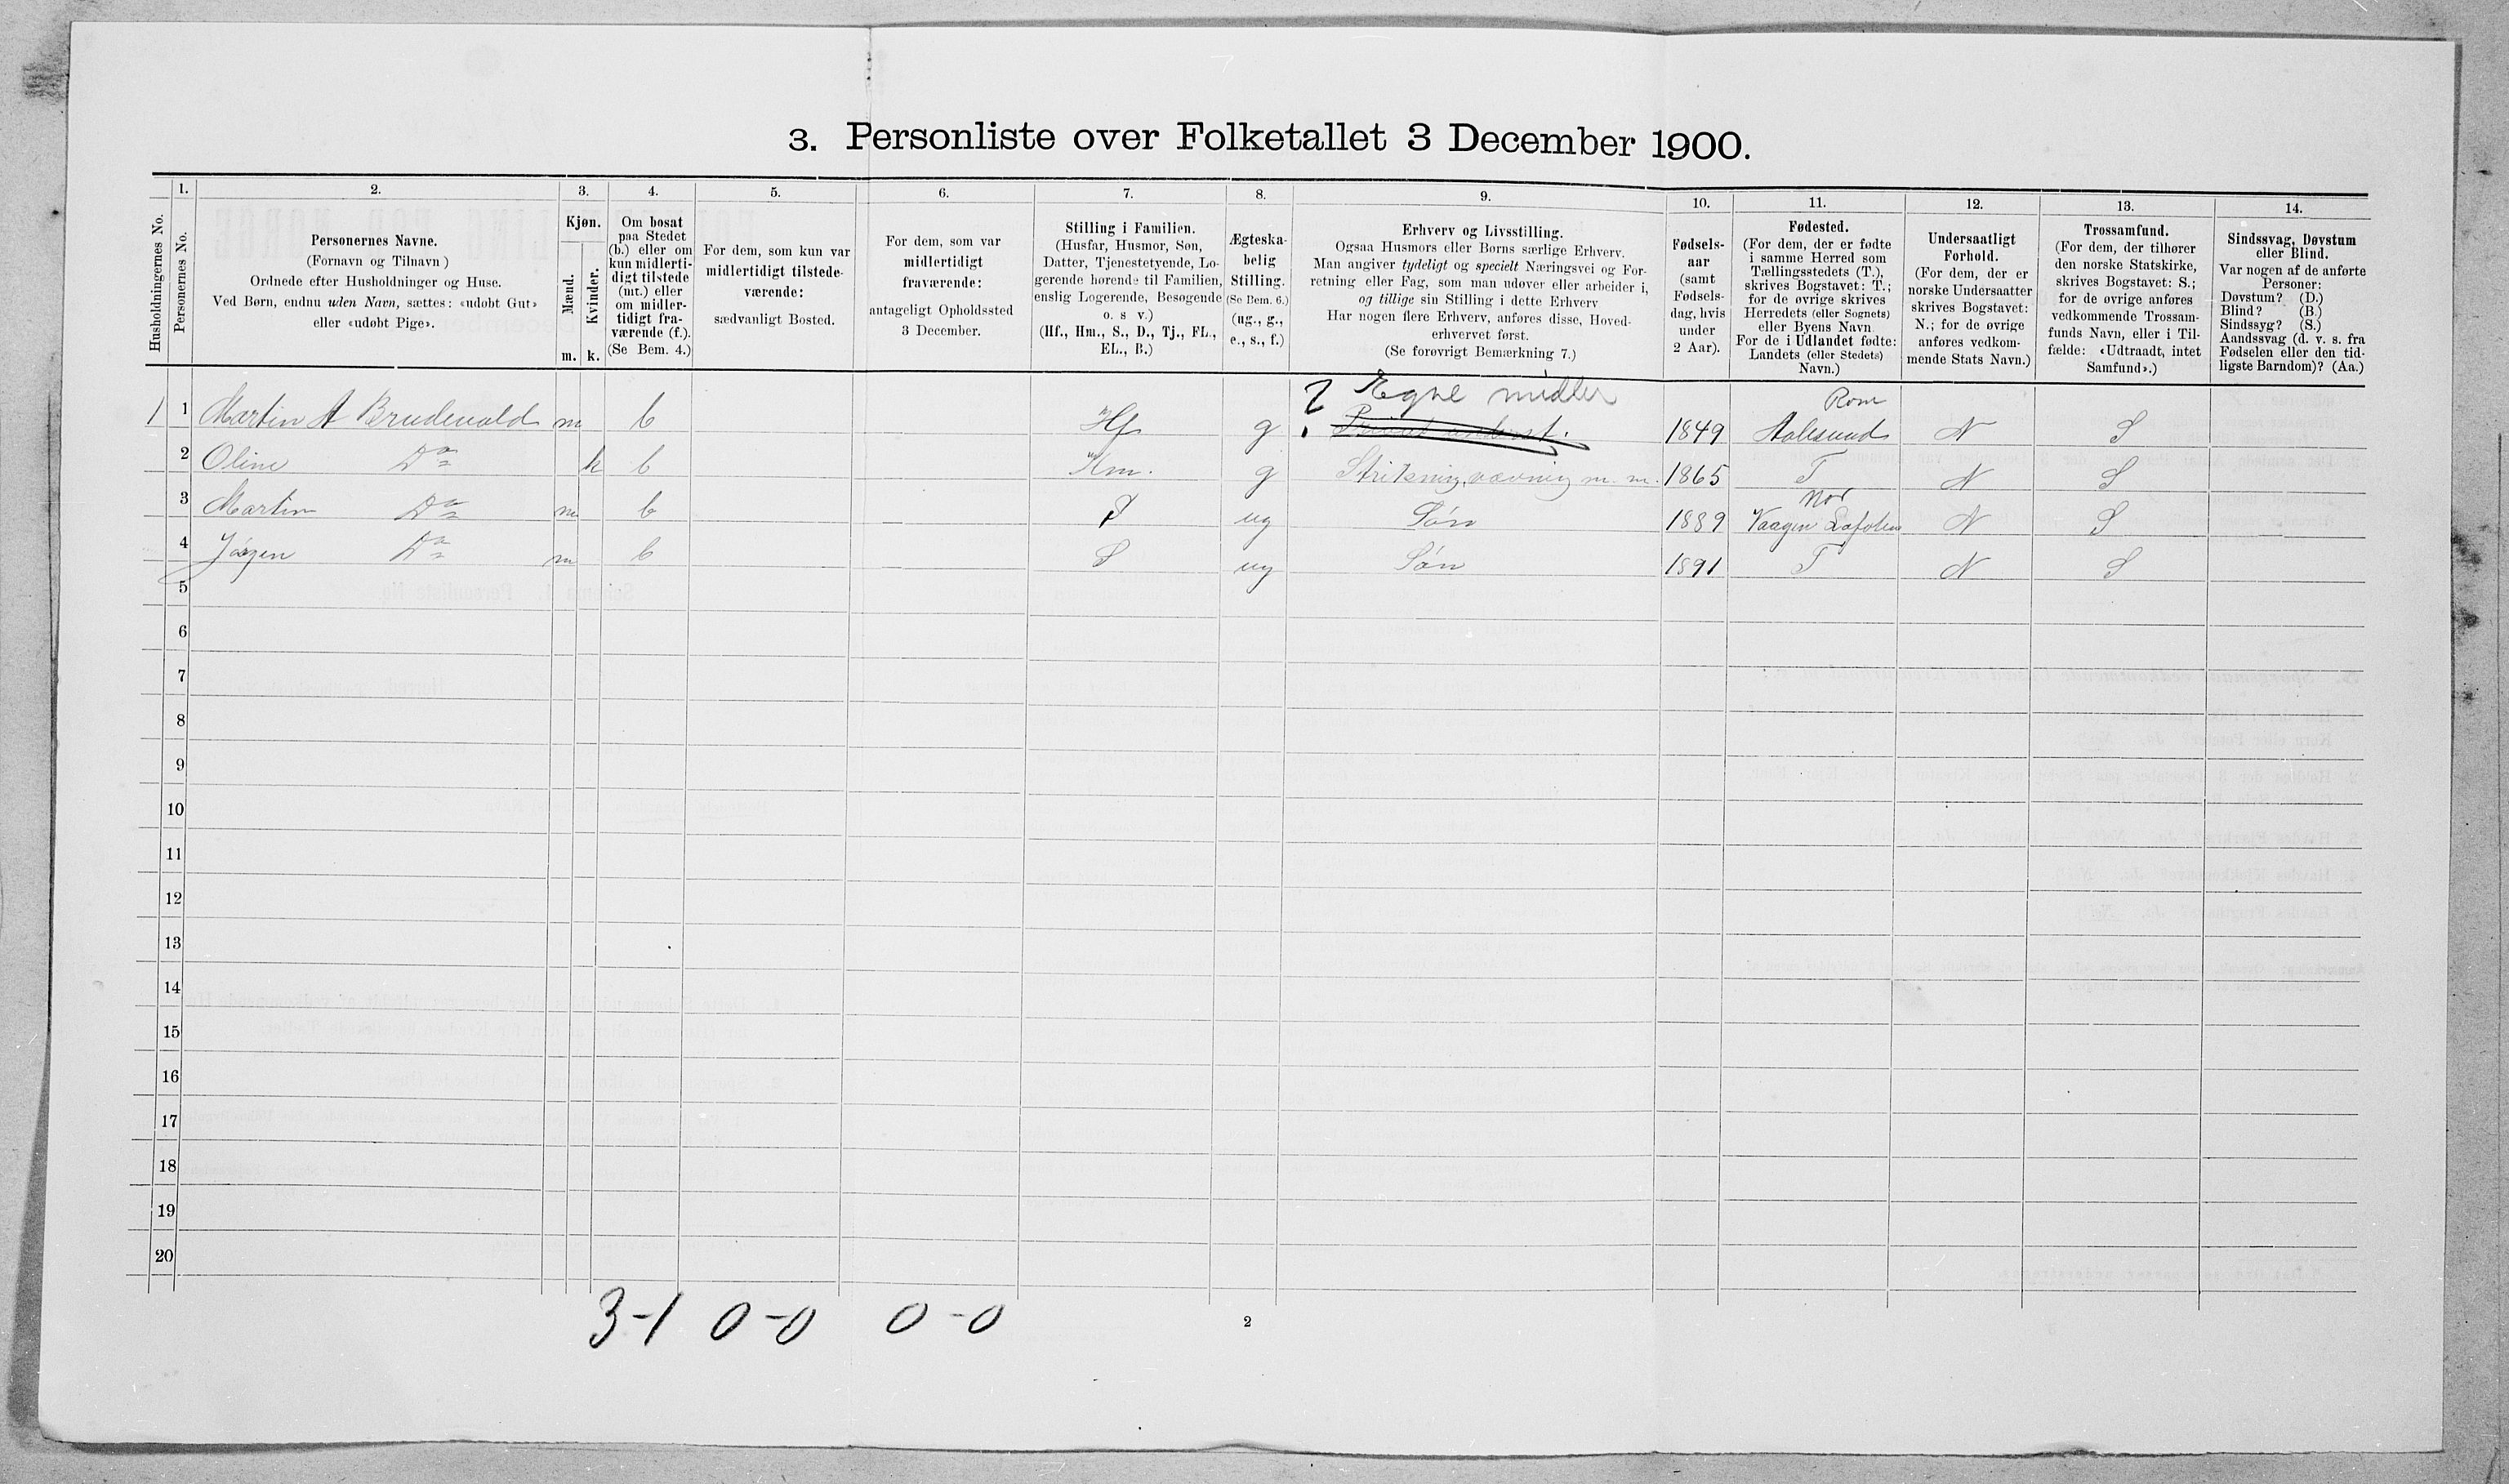 3. Personliste over Folketallet 3 December 1900.
Husholdningernes No.
1.
Personernes No.
2.
Personernes Navne.
(Fornavn og Tilnavn)
Ordnede efter Husholdninger og Huse.
Ved Børn, endnu uden Navn, sættes: «udøbt Gut»
eller «udøbt Pige».
3.
Kjøn.
Mænd.
Kvinder.
m. k.
4.
Om bosat
paa Stedet
(b.) eller om
kun midlerti-
digt tilstede
(mt.) eller
om midler-
tidigt fra-
værende (f.).
(Se Bem. 4.)
5.
For dem, som kun var
midlertidigt tilstede-
værende:
sædvanligt Bosted.
6.
For dem, som var
midlertidigt
fraværende:
antageligt Opholdssted
3 December.
7.
Stilling i Familien.
(Husfar, Husmor, Søn,
Datter, Tjenestetyende, Lo-
gerende hørende til Familien,
enslig Logerende, Besøgende
o. s v.)
(Hf., Hm., S., D., Tj., FL.,
EL., B.)
8.
Ægteska-
belig
Stilling.
(Se Bem. 6.)
(ug., g.,
e., s., f.)
9.
Erhverv og Livsstilling.
Ogsaa Husmors eller Børns særlige Erhverv.
Man angiver tydeligt og specielt Næringsvei og For-
retning eller Fag, som man udøver eller arbeider i,
og tillige sin Stilling i dette Erhverv
Har nogen flere Erhverv, anføres disse, Hoved-
erhvervet først.
(Se forøvrigt Bemærkning 7.)
10.
Fødsels-
aar
(samt
Fødsels-
dag, hvis
under
2 Aar).
11.
Fødested.
(For dem, der er fødte
i samme Herred som
Tællingsstedets (T.),
skrives Bogstavet: T.;
for de øvrige skrives
Herredets (eller Sognets)
eller Byens Navn
For de i Udlandet fødte:
Landets (eller Stedets)
Navn.)
12.
Undersaatligt
Forhold.
(For dem, der er
norske Undersaatter
skrives Bogstavet:
N.; for de øvrige
anføres vedkom-
mende Stats Navn.)
13.
Trossamfund.
(For dem, der tilhører
den norske Statskirke,
skrives Bogstavet: S.;
for de øvrige anføres
vedkommende Trossam-
funds Navn, eller i Til-
fælde: «Udtraadt, intet
Samfund».)
14.
Sindssvag, Døvstum
eller Blind.
Var nogen af de anførte
Personer:
Døvstum? (D.)
Blind? (B.)
Sindssyg? (S.)
Aandssvag (d. v. s. fra
Fødselen eller den tid-
ligste Barndom)? (Aa.)
Egne midler
Rom
1 1 Martin A Brudevold m b Hf g 1849 Aalesund N S
2 Oline Do k b Hm. g Strikning, vævning m. m. 1865 T N S
Nor
3 Martin Do m b S ug Søn 1889 Vaagen Lofoten N S
4 Jørgen Do m b S ug Søn 1891 T N S
5
6
7
8
9
10
11
12
13
14
15
16
17
18
19
20
3-1 0-0 0-0
2